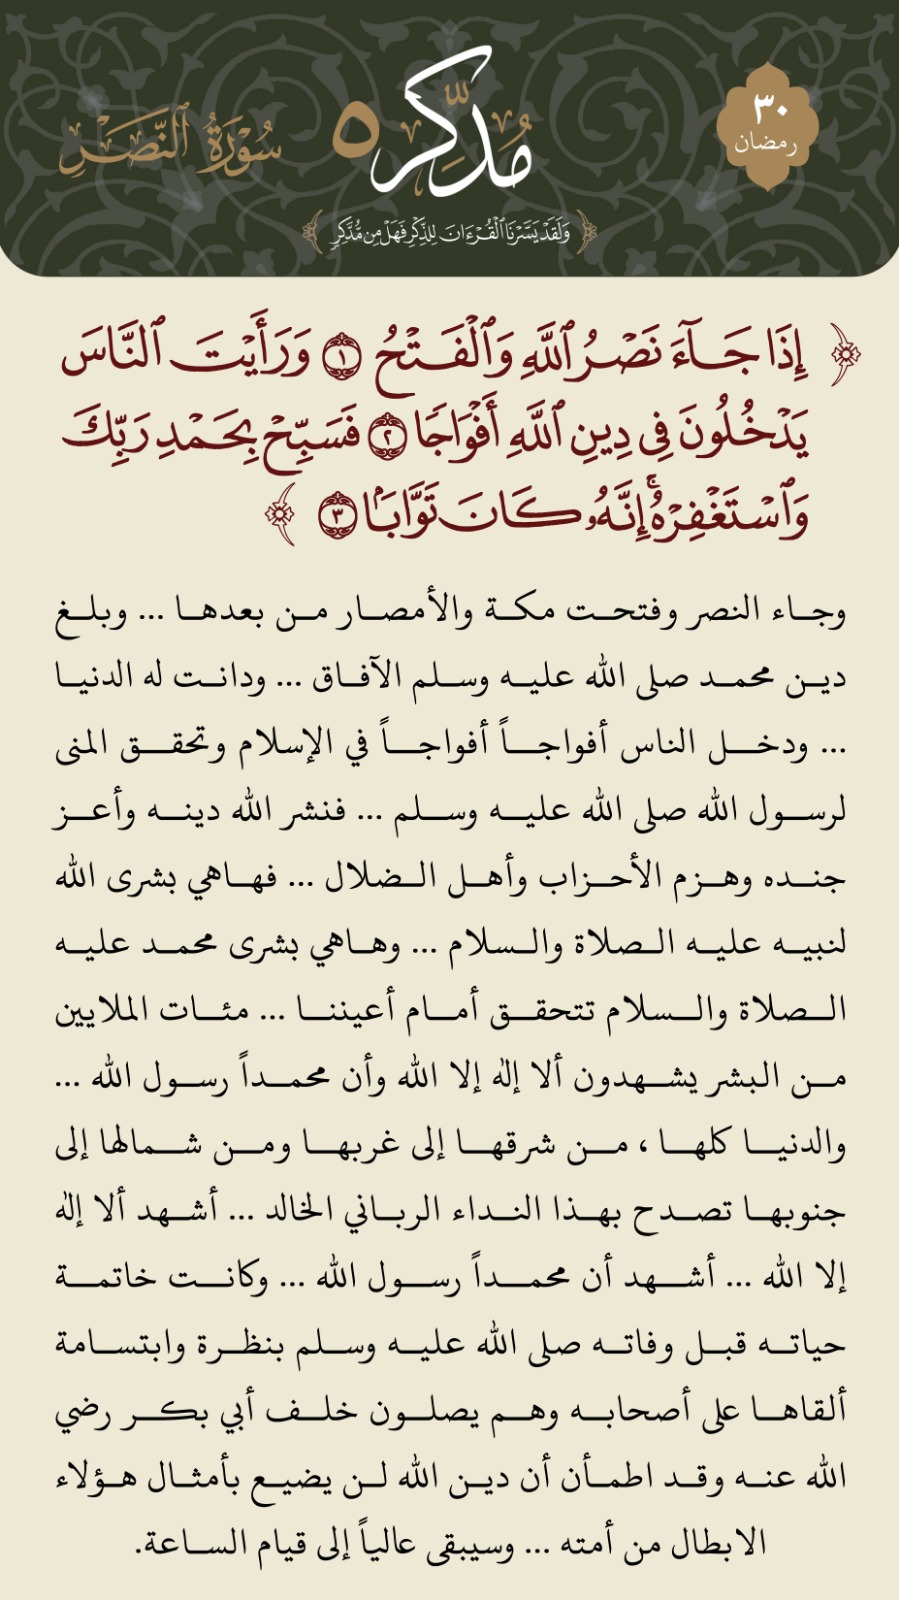 ٣٠
رمضان
مُدَّكِر ٥
سُورَةُ النَّصْرِ
﴿ وَلَقَدْ يَسَّرْنَا ٱلْقُرْءَانَ لِلذِّكْرِ فَهَلْ مِن مُّدَّكِرٍ ﴾
﴿ إِذَا جَآءَ نَصْرُ ٱللَّهِ وَٱلْفَتْحُ ١ وَرَأَيْتَ ٱلنَّاسَ
يَدْخُلُونَ فِى دِينِ ٱللَّهِ أَفْوَاجًا ٢ فَسَبِّحْ بِحَمْدِ رَبِّكَ
وَٱسْتَغْفِرْهُ ۚ إِنَّهُۥ كَانَ تَوَّابًۢا ٣ ﴾
وجاء النصر وفتحت مكة والأمصار من بعدها ... وبلغ
دين محمد صلى الله عليه وسلم الآفاق ... ودانت له الدنيا
... ودخل الناس أفواجاً أفواجاً في الإسلام وتحقق المنى
لرسول الله صلى الله عليه وسلم ... فنشر الله دينه وأعز
جنده وهزم الأحزاب وأهل الضلال ... فهاهي بشرى الله
لنبيه عليه الصلاة والسلام ... وهاهي بشرى محمد عليه
الصلاة والسلام تتحقق أمام أعيننا ... مئات الملايين
من البشر يشهدون ألا إله إلا الله وأن محمداً رسول الله ...
والدنيا كلها ، من شرقها إلى غربها ومن شمالها إلى
جنوبها تصدح بهذا النداء الرباني الخالد ... أشهد ألا إله
إلا الله ... أشهد أن محمداً رسول الله ... وكانت خاتمة
حياته قبل وفاته صلى الله عليه وسلم بنظرة وابتسامة
ألقاها على أصحابه وهم يصلون خلف أبي بكر رضي
الله عنه وقد اطمأن أن دين الله لن يضيع بأمثال هؤلاء
الابطال من أمته ... وسيبقى عالياً إلى قيام الساعة.